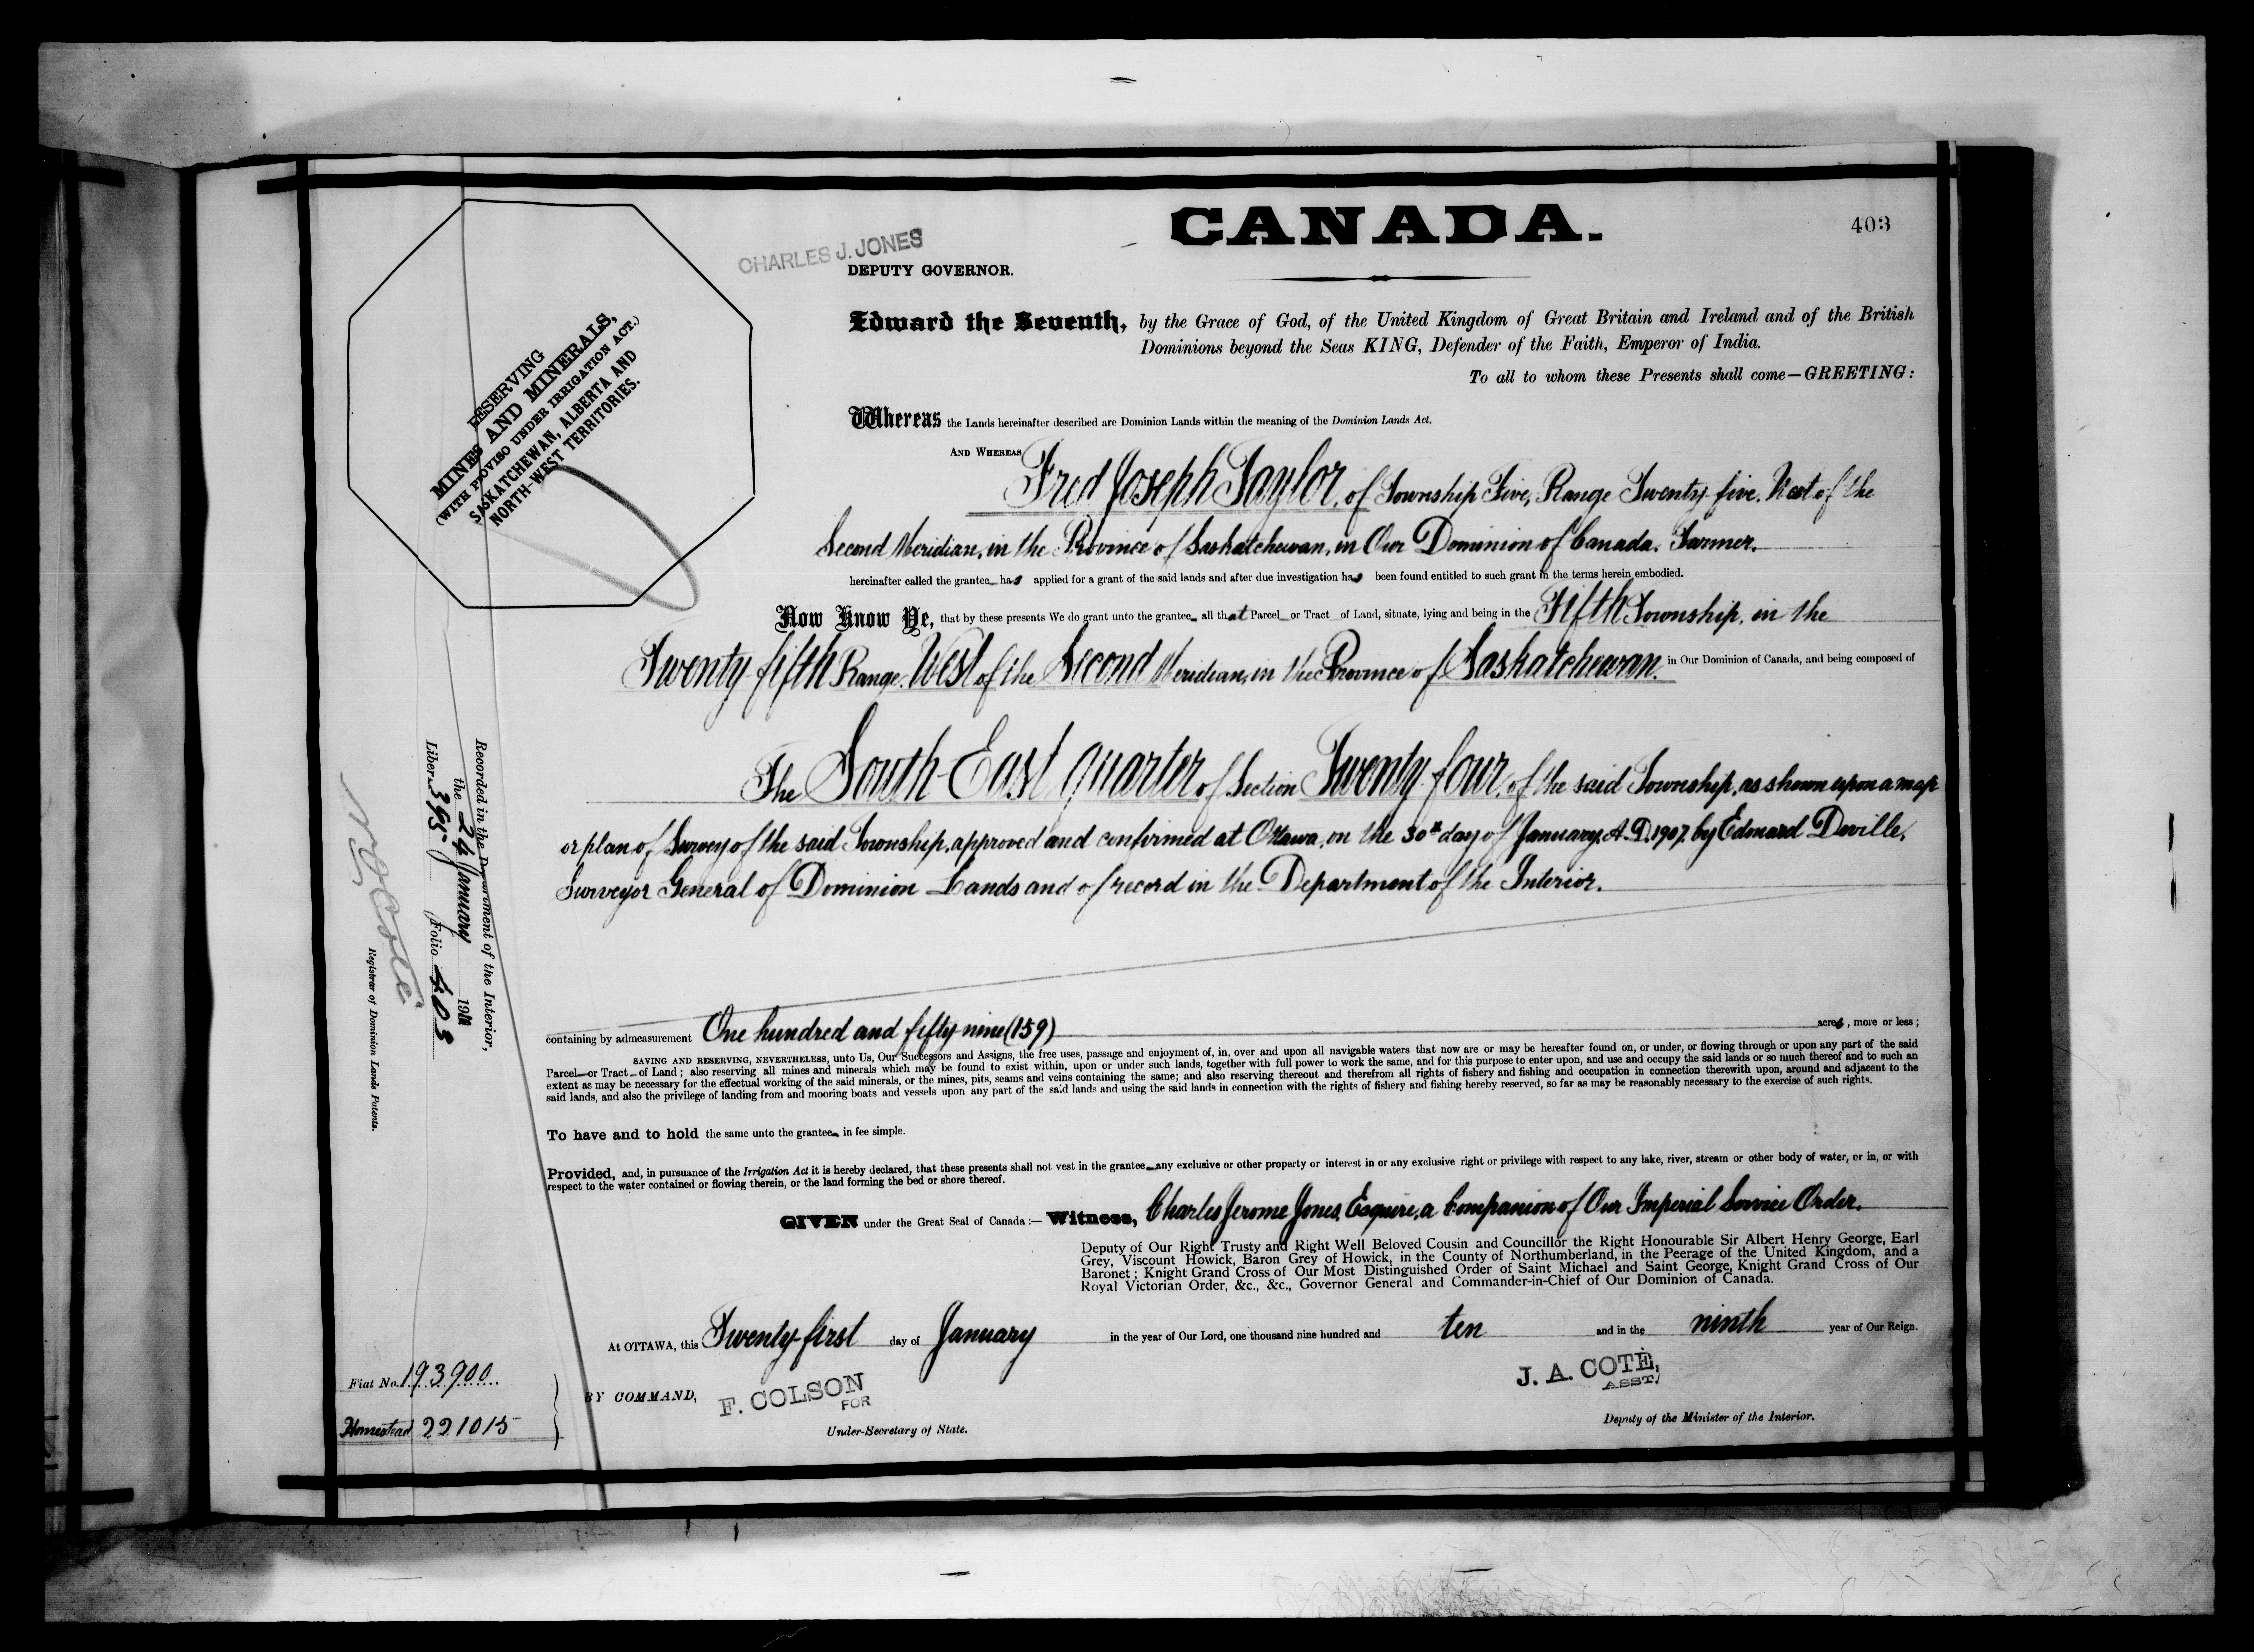 CANADA.
403
CHARLES J. JONES
DEPUTY GOVERNOR.
RESERVING
MINES AND MINERALS,
(WITH PROVISO UNDER IRRIGATION ACT.)
SASKATCHEWAN, ALBERTA AND
NORTH-WEST TERRITORIES.
Edward the Seventh, by the Grace of God, of the United Kingdom of Great Britain and Ireland and of the British
Dominions beyond the Seas KING, Defender of the Faith, Emperor of India.
To all to whom these Presents shall come—GREETING:
Whereas the Lands hereinafter described are Dominion Lands within the meaning of the Dominion Lands Act.
AND WHEREAS Fred Joseph Taylor, of Township Five, Range Twenty five, West of the
Second Meridian, in the Province of Saskatchewan, in Our Dominion of Canada. Farmer.
hereinafter called the grantee has applied for a grant of the said lands and after due investigation has been found entitled to such grant in the terms herein embodied.
Now Know Ye, that by these presents We do grant unto the grantee all that Parcel or Tract of Land, situate, lying and being in the Fifth Township, in the
Twenty fifth Range, West of the Second Meridian, in the Province of Saskatchewan. in Our Dominion of Canada, and being composed of
The South East quarter of Section Twenty four, of the said Township, as shown upon a map
or plan of Survey of the said Township, approved and confirmed at Ottawa, on the 30th day of January, A.D. 1907, by Edouard Deville,
Surveyor General of Dominion Lands and of record in the Department of the Interior.
containing by admeasurement One hundred and fifty nine (159) acres, more or less;
SAVING AND RESERVING, NEVERTHELESS, unto Us, Our Successors and Assigns, the free uses, passage and enjoyment of, in, over and upon all navigable waters that now are or may be hereafter found on, or under, or flowing through or upon any part of the said
Parcel or Tract of Land; also reserving all mines and minerals which may be found to exist within, upon or under such lands, together with full power to work the same, and for this purpose to enter upon, and use and occupy the said lands or so much thereof and to such an
extent as may be necessary for the effectual working of the said minerals, or the mines, pits, seams and veins containing the same; and also reserving thereout and therefrom all rights of fishery and fishing and occupation in connection therewith upon, around and adjacent to the
said lands, and also the privilege of landing from and mooring boats and vessels upon any part of the said lands and using the said lands in connection with the rights of fishery and fishing hereby reserved, so far as may be reasonably necessary to the exercise of such rights.
To have and to hold the same unto the grantee in fee simple.
Provided, and, in pursuance of the Irrigation Act it is hereby declared, that these presents shall not vest in the grantee any exclusive or other property or interest in or any exclusive right or privilege with respect to any lake, river, stream or other body of water, or in, or with
respect to the water contained or flowing therein, or the land forming the bed or shore thereof.
GIVEN under the Great Seal of Canada:— Witness, Charles Jerome Jones, Esquire, a Companion of Our Imperial Service Order.
Deputy of Our Right Trusty and Right Well Beloved Cousin and Councillor the Right Honourable Sir Albert Henry George, Earl
Grey, Viscount Howick, Baron Grey of Howick, in the County of Northumberland, in the Peerage of the United Kingdom, and a
Baronet; Knight Grand Cross of Our Most Distinguished Order of Saint Michael and Saint George, Knight Grand Cross of Our
Royal Victorian Order, &c., &c., Governor General and Commander-in-Chief of Our Dominion of Canada.
At OTTAWA, this Twenty first day of January in the year of Our Lord, one thousand nine hundred and ten and in the ninth year of Our Reign.
BY COMMAND,
F. COLSON
FOR
Under-Secretary of State.
J. A. COTÉ,
ASST.
Deputy of the Minister of the Interior.
Recorded in the Department of the Interior,
the 24 January
Liber 395 Folio 403
Registrar of Dominion Lands Patents.
Fiat No. 193900
Homestead 221015